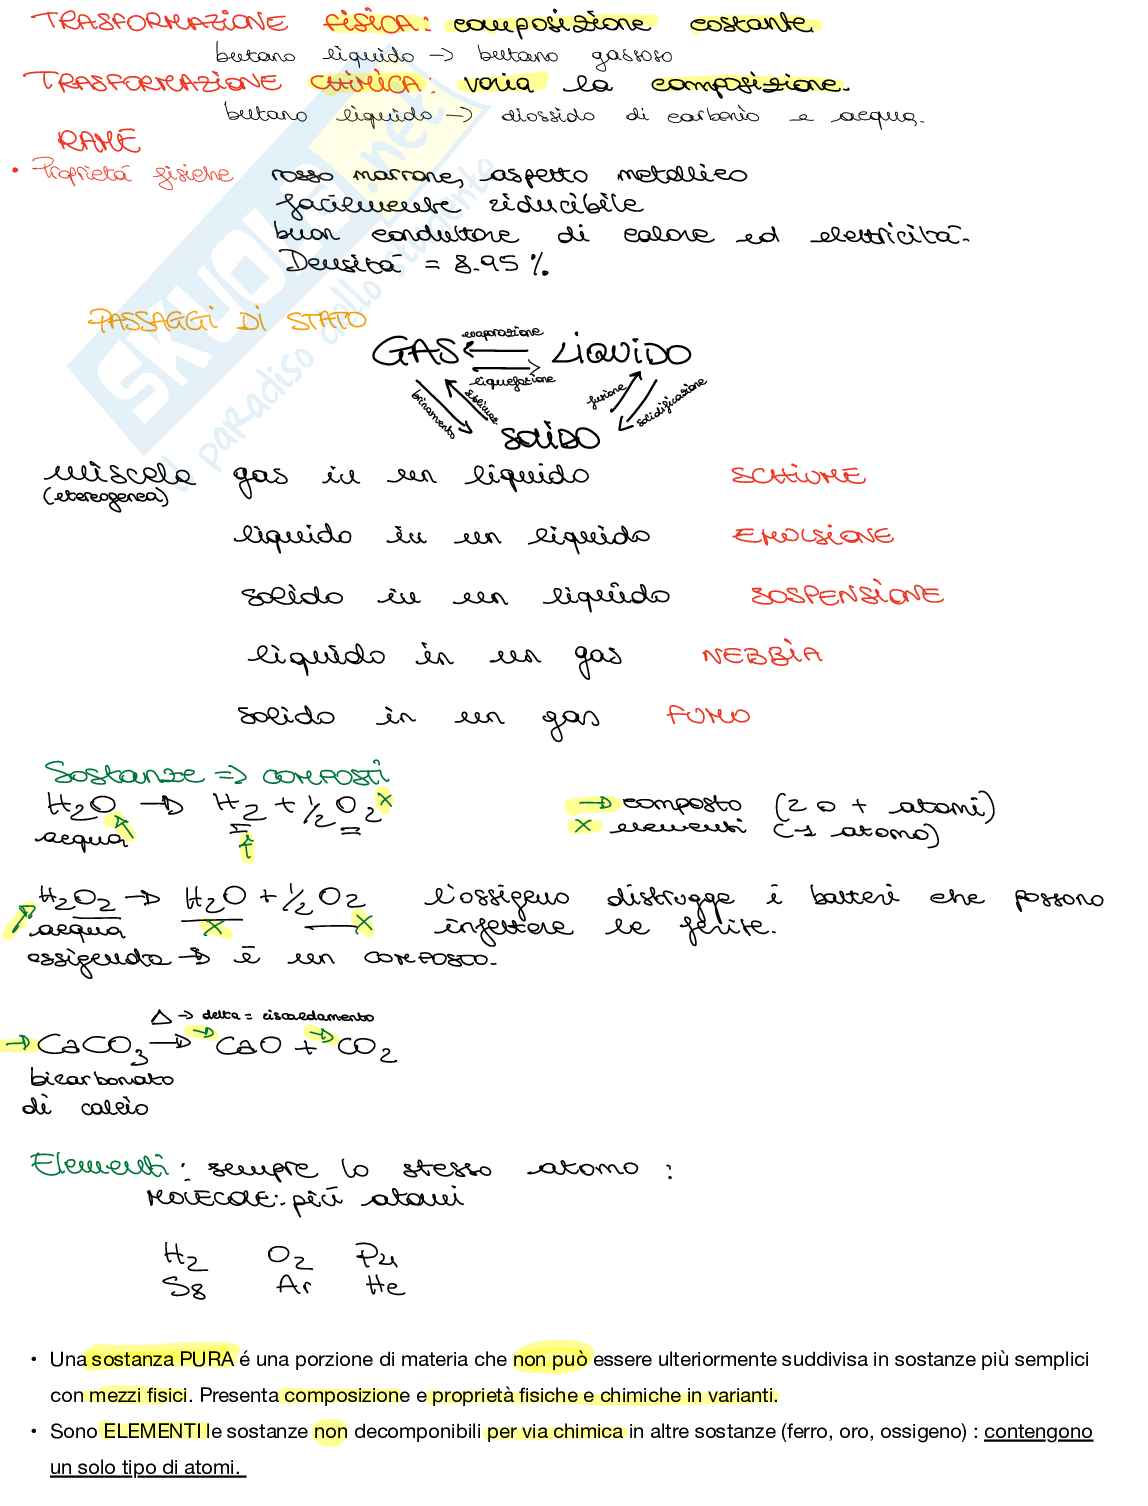 TRASFORMAZIONE FISICA: composizione costante
butano liquido → butano gassoso
TRASFORMAZIONE CHIMICA: varia la composizione.
butano liquido → diossido di carbonio e acqua.
RAME
• Proprietà fisiche rosso marrone, aspetto metallico
facilmente riducibile
buon conduttore di calore ed elettricità.
Densità = 8.95 %
PASSAGGI DI STATO
evaporazione
GAS LIQUIDO
liquefazione
brinamento
fusione
solidificazione
SOLIDO
miscela gas in un liquido SCHIUME
(eterogenea)
liquido in un liquido EMULSIONE
solido in un liquido SOSPENSIONE
liquido in un gas NEBBIA
solido in un gas FUMO
Sostanze => COMPOSTI
H2O → H2 + ½ O2 x
acqua
→ composto (2 o + atomi)
x elementi (-1 atomo)
H2O2 → H2O + ½ O2 l'ossigeno distrugge i batteri che possono
acqua x x infettere le ferite.
ossigenata → è un composto.
△ → delta = riscaldamento
→ CaCO3 → → CaO + → CO2
bicarbonato
di calcio
Elementi: sempre lo stesso atomo:
MOLECOLE: più atomi
H2 O2 Pu
S8 Ar He
• Una sostanza PURA é una porzione di materia che non può essere ulteriormente suddivisa in sostanze più semplici
con mezzi fisici. Presenta composizione e proprietà fisiche e chimiche in varianti.
• Sono ELEMENTI le sostanze non decomponibili per via chimica in altre sostanze (ferro, oro, ossigeno) : contengono
un solo tipo di atomi.
SKUOLA.net
il paradiso dello studente